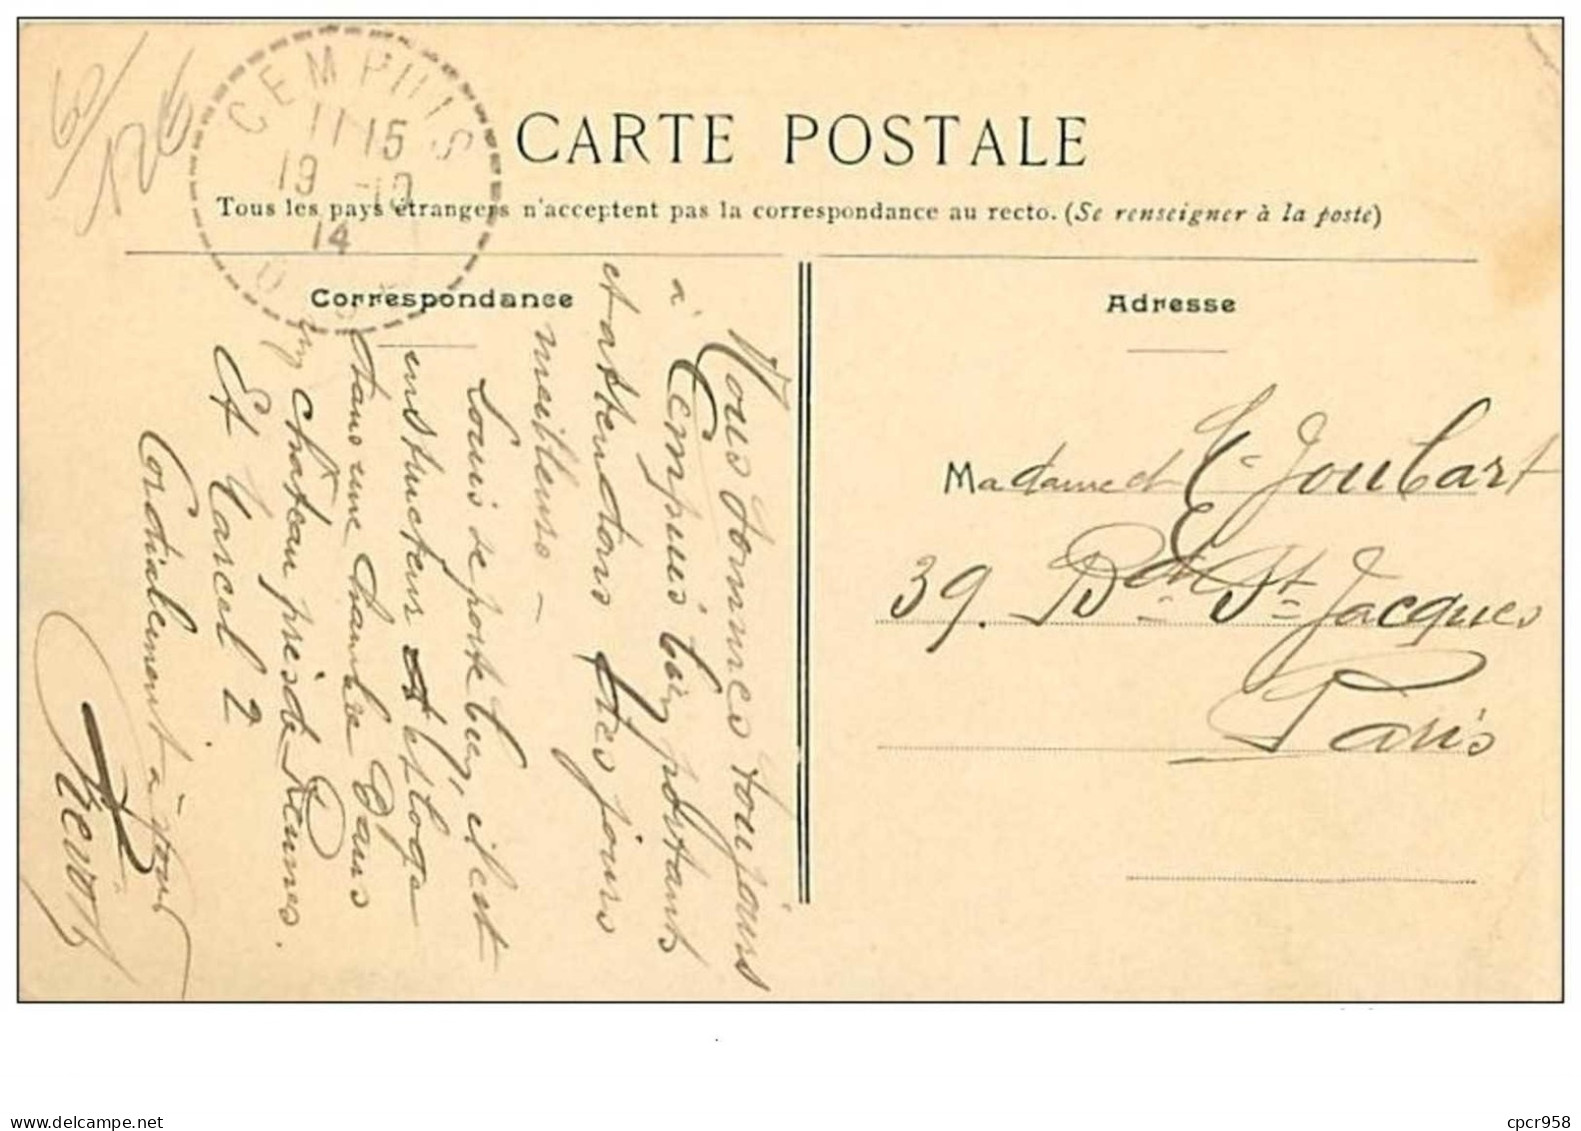 60/
126
CEMPUIS
11 15
19 -10
14
O
CARTE POSTALE
Tous les pays étrangers n'acceptent pas la correspondance au recto. (Se renseigner à la poste)
Correspondance
Nous sommes toujours
à Cempuis bien portants
et attendons des jours
meilleurs –
Louis se porte bien, il est
instructeur et loge
dans une chambre dans
un château près de Rennes.
Et Marcel ?
Cordialement à vous
Adresse
Madame et E. Joubart
39. Bd St Jacques
Paris
www.delcampe.net
cpcr958